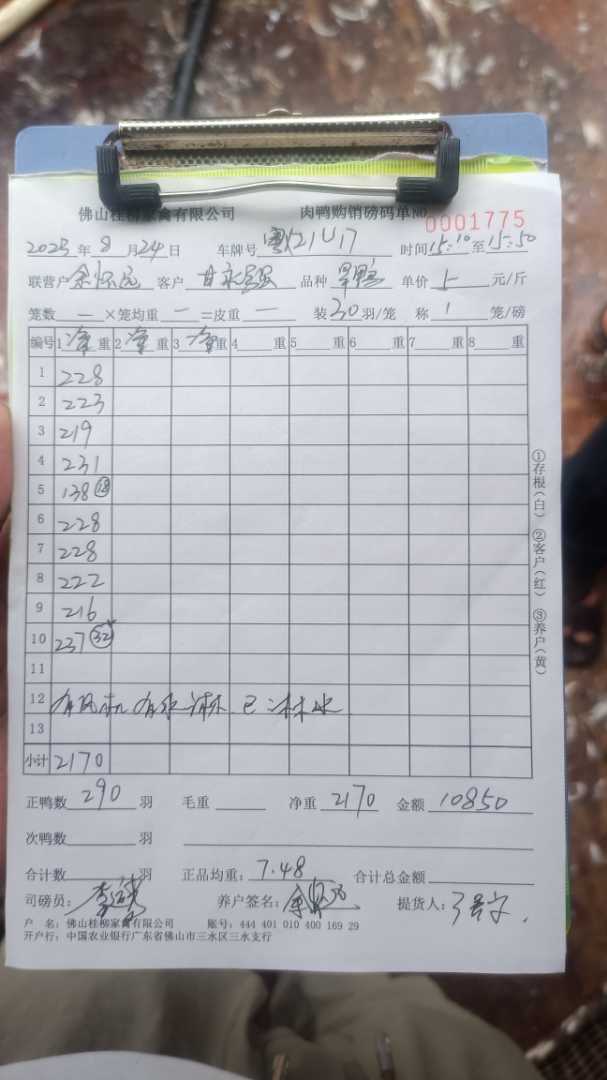 佛山桂柳家禽有限公司 肉鸭购销磅码单NO 0001775
2025年8月24日 车牌号 时间15:10至15:50
联营户 客户 甘 品种 单价5元/斤
笼数—×笼均重—=皮重— 装30羽/笼 称1笼/磅
编号 1净重 2净重 3净重 4重 5重 6重 7重 8重
1 228
2 223
3 219
4 231
5 138 ⑱
6 228
7 228
8 222
9 216
10 237 ㉜
11
12 有风机 有水淋 已淋水
13
小计 2170
正鸭数290羽 毛重 净重2170 金额10850
次鸭数 羽
合计数 羽 正品均重:7.48 合计总金额
司磅员: 养户签名: 提货人:
户 名:佛山桂柳家禽有限公司 账号:444 401 010 400 169 29
开户行:中国农业银行广东省佛山市三水区三水支行
①存根(白) ②客户(红) ③养户(黄)